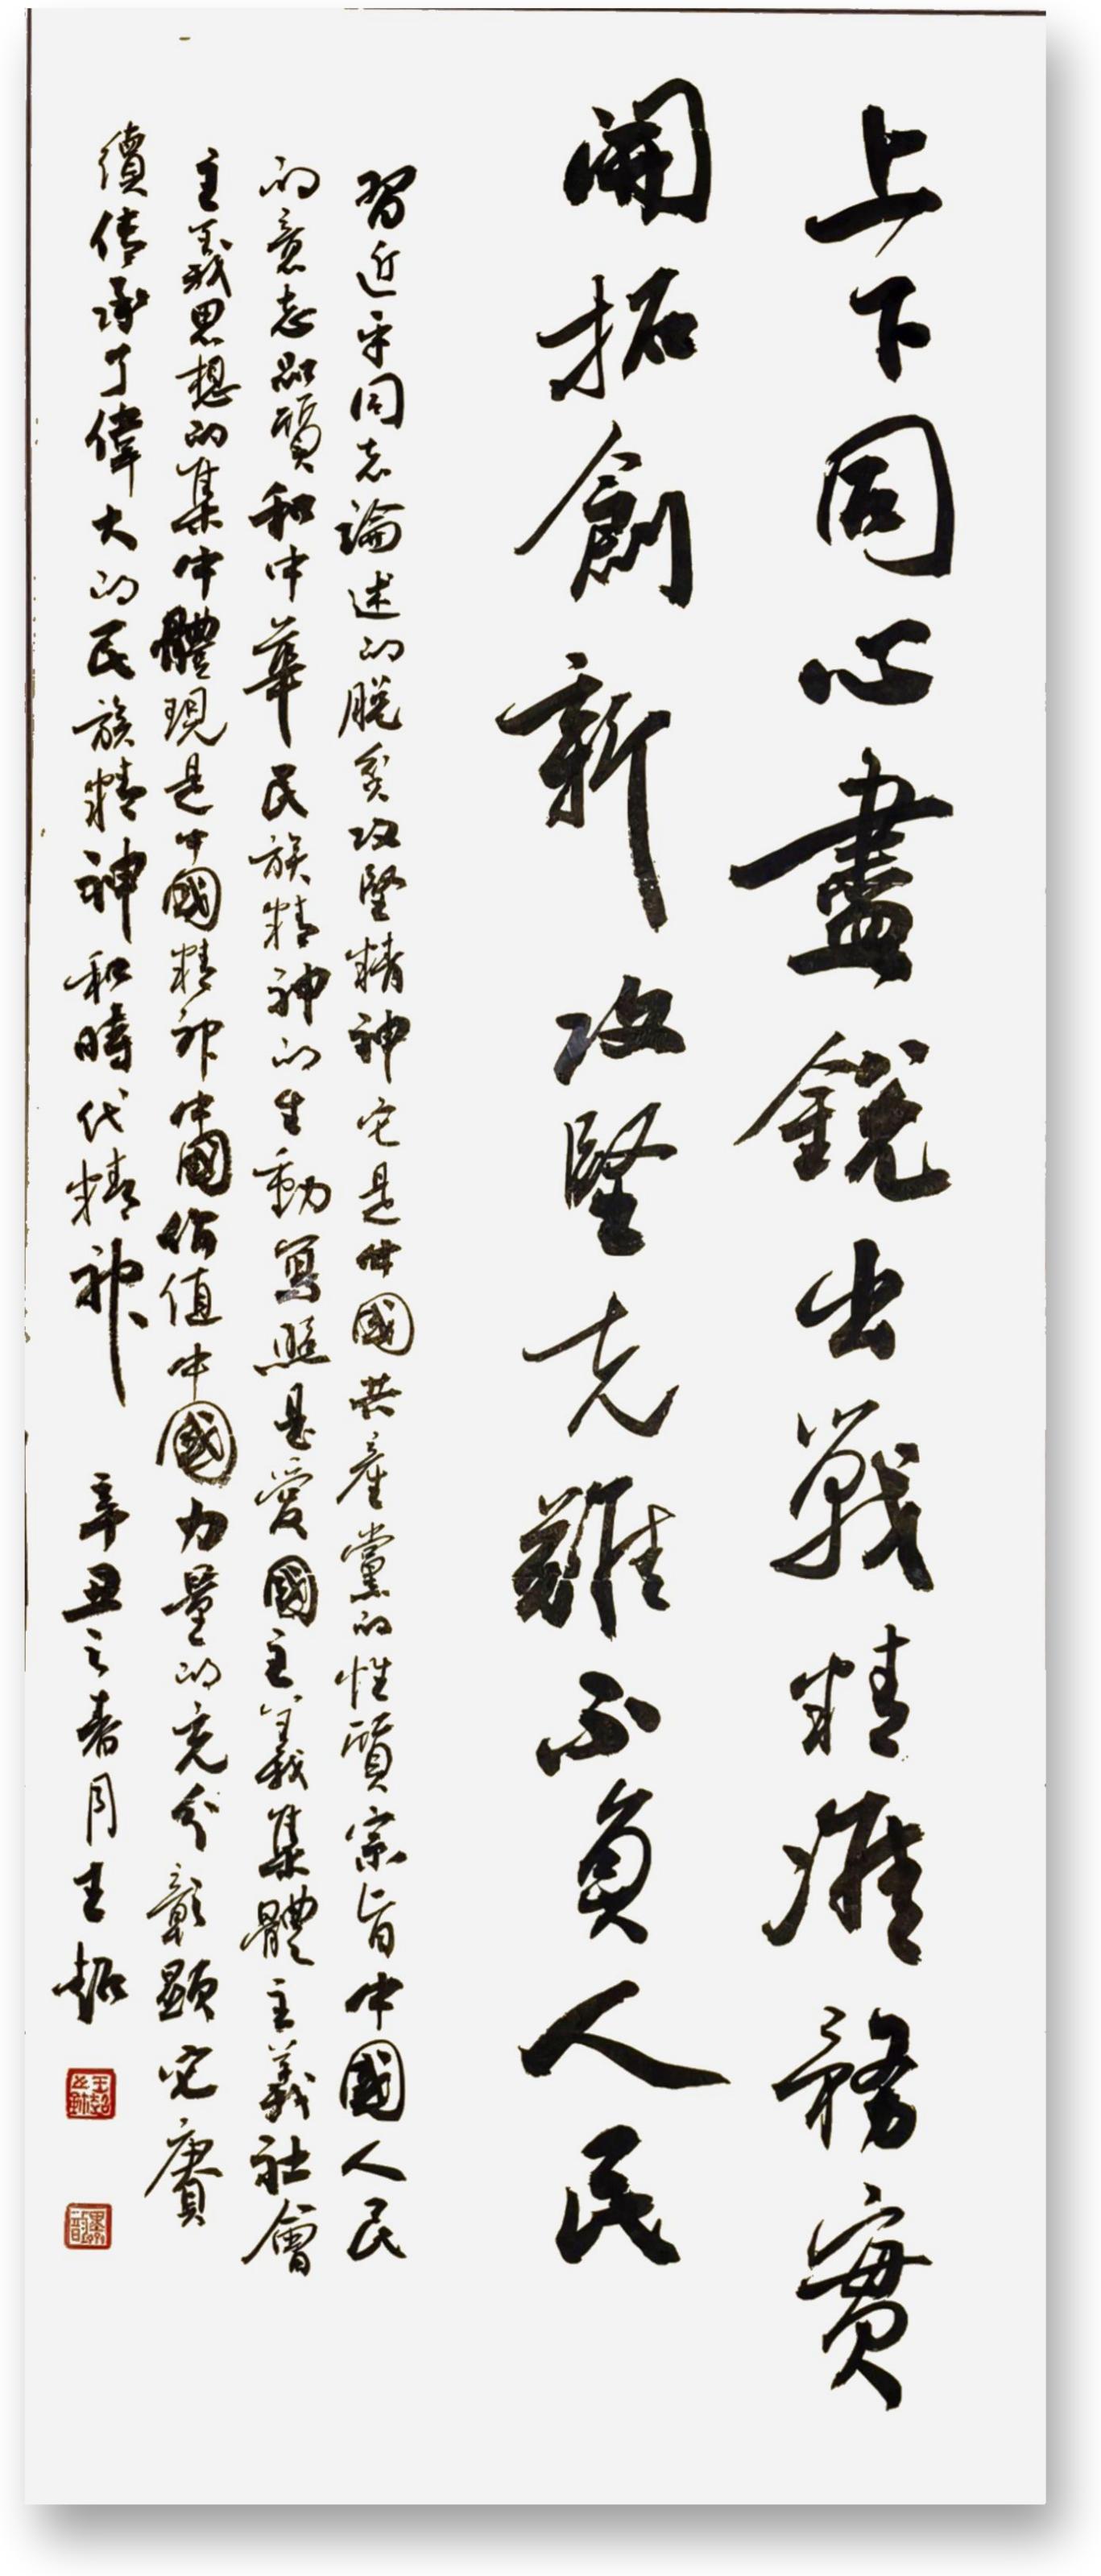 上下同心盡銳出戰精準務實
開拓創新攻堅克難不負人民
習近平同志論述的脫貧攻堅精神它是中國共產黨的性質宗旨中國人民
的意志品質和中華民族精神的生動寫照是愛國主義集體主義社會
主義思想的集中體現是中國精神中國價值中國力量的充分彰顯它賡
續傳承了偉大的民族精神和時代精神 辛丑之春月王超